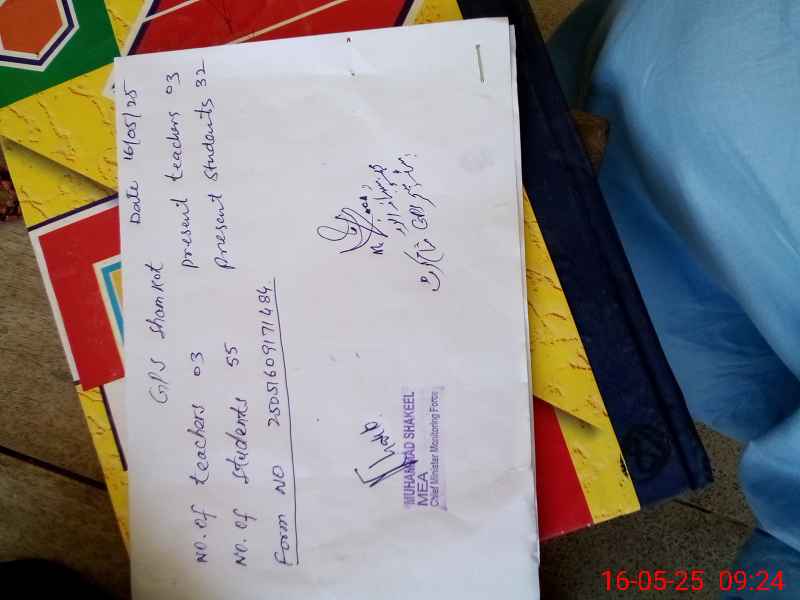 GPS Shamkot Date 16/05/25
No. of teachers 03 present teachers 03
No. of students 55 present students 32
Form No 25051609171484
MUHAMMAD SHAKEEL
MEA
Chief Minister Monitoring Force
GPS
16-05-25 09:24